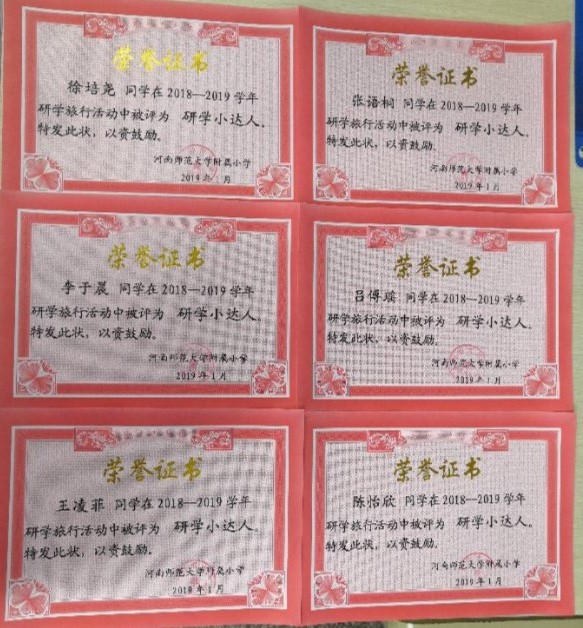 荣誉证书
徐培尧 同学在2018—2019学年
研学旅行活动中被评为 研学小达人。
特发此状，以资鼓励。
河南师范大学附属小学
2019年1月
荣誉证书
张浯桐 同学在2018—2019学年
研学旅行活动中被评为 研学小达人。
特发此状，以资鼓励。
河南师范大学附属小学
2019年1月
荣誉证书
李于晨 同学在2018—2019学年
研学旅行活动中被评为 研学小达人。
特发此状，以资鼓励。
河南师范大学附属小学
2019年1月
荣誉证书
同学在2018—2019学年
研学旅行活动中被评为 研学小达人。
特发此状，以资鼓励。
河南师范大学附属小学
2019年1月
荣誉证书
王凌菲 同学在2018—2019学年
研学旅行活动中被评为 研学小达人。
特发此状，以资鼓励。
河南师范大学附属小学
2019年1月
荣誉证书
陈怡欣 同学在2018—2019学年
研学旅行活动中被评为 研学小达人。
特发此状，以资鼓励。
河南师范大学附属小学
2019年1月